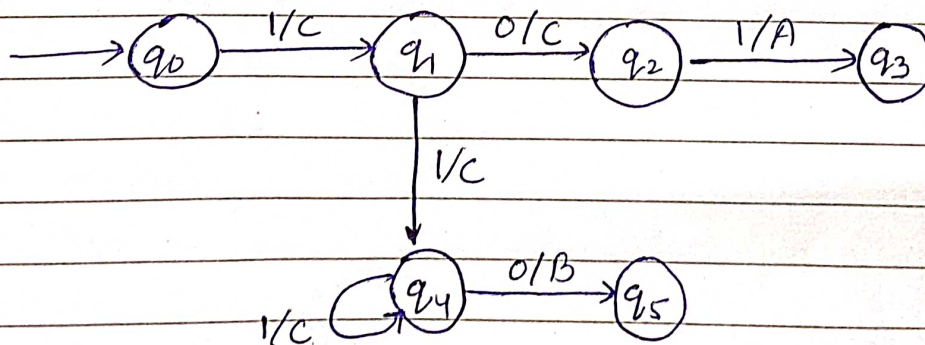 q0 1/C q1 0/C q2 1/A q3
1/C
q4 0/B q5
1/C